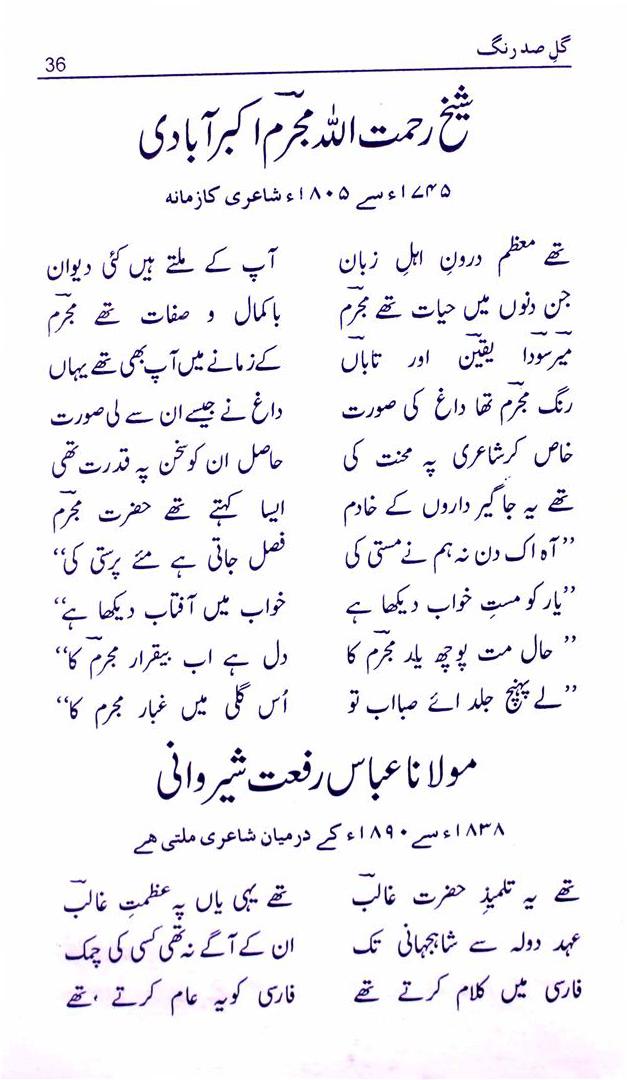 گلِ صد رنگ
36
شیخ رحمت اللہ مجرم اکبر آبادی
۱۷۴۵ء سے ۱۸۰۵ء شاعری کا زمانہ
تھے معظم درونِ اہلِ زبان آپ کے ملتے ہیں کئی دیوان
جن دنوں میں حیات تھے مجرم باکمال و صفات تھے مجرم
میر سودا یقین اور تاباں کے زمانے میں آپ بھی تھے یہاں
رنگ مجرم تھا داغ کی صورت داغ نے جیسے ان سے لی صورت
خاص کر شاعری پہ محنت کی حاصل ان کو سخن پہ قدرت تھی
تھے یہ جاگیرداروں کے خادم ایسا کہتے تھے حضرت مجرم
”آہ اک دن نہ ہم نے مستی کی فصل جاتی ہے مئے پرستی کی“
”یار کو مستِ خواب دیکھا ہے خواب میں آفتاب دیکھا ہے“
”حال مت پوچھ یلد مجرم کا دل ہے اب بیقرار مجرم کا“
”لے پہنچ جلد ائے صبا اب تو اُس گلی میں غبار مجرم کا“
مولانا عباس رفعت شیروانی
۱۸۳۸ء سے ۱۸۹۰ء کے درمیان شاعری ملتی ہے
تھے یہ تلمیذِ حضرت غالب تھے یہی یاں پہ عظمتِ غالب
عہد دولہ سے شاہجہانی تک ان کے آگے نہ تھی کسی کی چمک
فارسی میں کلام کرتے تھے فارسی کو یہ عام کرتے تھے،